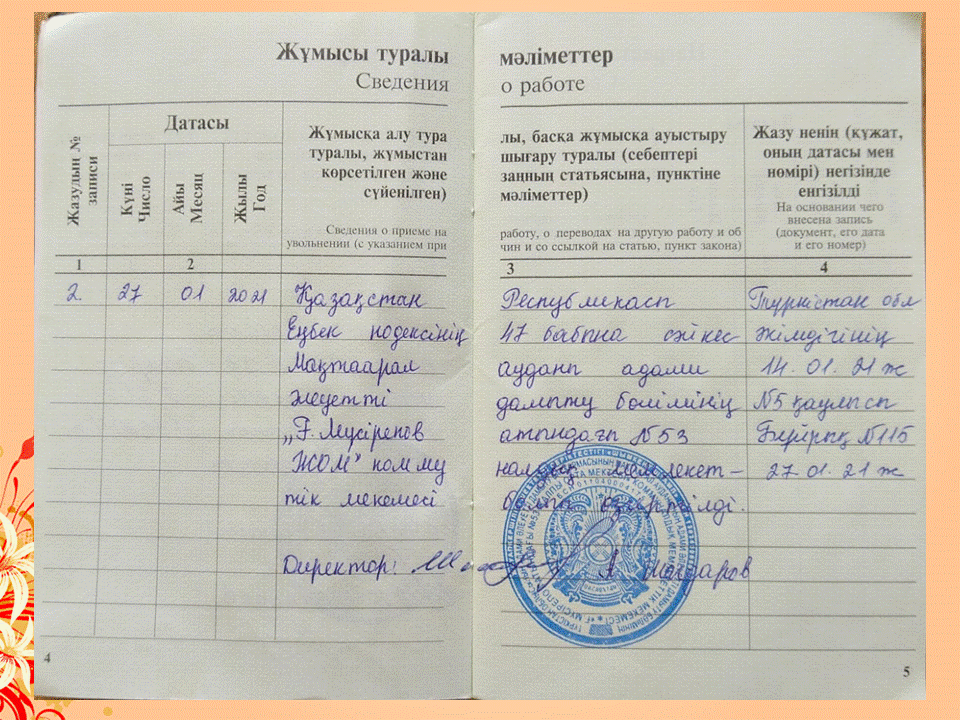 Жұмысы туралы мәліметтер
Сведения о работе
Жазудың №
записи
Датасы
Күні
Число
Айы
Месяц
Жылы
Год
Жұмысқа алу тура
туралы, жұмыстан
көрсетілген және
сүйенілген)
Сведения о приеме на
увольнении (с указанием при
лы, басқа жұмысқа ауыстыру
шығару туралы (себептері
заңның статьясына, пунктіне
мәліметтер)
работу, о переводах на другую работу и об
чин и со ссылкой на статью, пункт закона)
Жазу ненің (құжат,
оның датасы мен
нөмірі) негізінде
енгізілді
На основании чего
внесена запись
(документ, его дата
и его номер)
1 2 3 4
2. 27 01 2021 Қазақстан Республикасы Түркістан обл
Еңбек кодексінің 47 бабына сәйкес әкімдігінің
Мақтаарал ауданы адами 14.01.21 ж
әлеуетті дамыту бөлімінің №5 қаулысы
„Ғ.Мүсірепов атындағы №53 Бұйрық №115
ЖОМ” комму налдық мемлекет- 27.01.21 ж
тік мекемесі болып өзгертілді.
Директор: А Шондаров
4
5